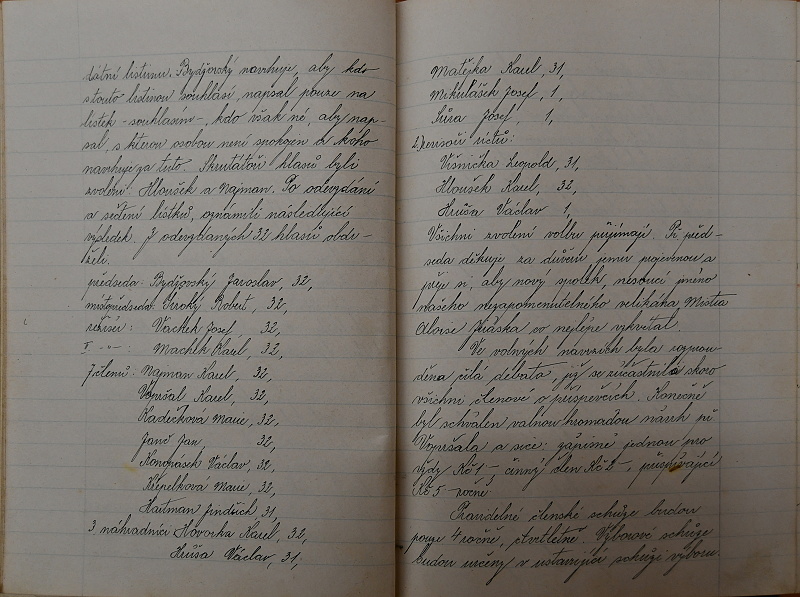 dátní listinu. Bydžovský navrhuje, aby kdo
s touto listinou souhlasí, napsal pouze na
lístek -souhlasím-, kdo však né, aby nap-
sal, s kterou osobou není spokojen a koho
navrhuje za tuto. Skrutátoři hlasů byli
zvoleni: Hloušek a Najman. Po odevzdání
a sčítení lístků, oznámili následující
výsledek. Z odevzdaných 32 hlasů obdr-
želi:
předseda: Bydžovský Jaroslav, 32,
místopředseda: Široký Robert, 32,
režisér: Vacek Josef, 32,
II -"- : Machek Karel, 32,
7 členů: Najman Karel, 32,
Vopršal Karel, 32,
Kadečková Marie, 32,
Janč Jan 32,
Konopásek Václav, 32,
Křepelková Marie, 32,
Hartman Jindřich 31,
3 náhradníci Hovorka Karel, 32,
Hrůša Václav, 31,
Matějka Karel, 31,
Mikulášek Josef, 1,
Šůra Josef, 1,
2 revisoři účtů:
Višnička Leopold, 31,
Hloušek Karel, 32,
Hrůša Václav 1,
Všichni zvolení volbu přijímají. Př. před-
seda děkuje za důvěru jemu projevenou a
přeje si, aby nový spolek, nesoucí jméno
našeho nezapomenutelného velikána Mistra
Aloise Jiráska co nejlépe vzkvétal.
Ve volných návrzích byla rozprou-
děna čilá debata, jíž se zúčastnili skoro
všichni členové o příspěvcích. Konečně
byl schválen valnou hromadou návrh př.
Vopršala a sice: zápisné jednou pro
vždy Kč 1 - činný člen Kč 2 -, přispívající
Kč 5 - ročně.
Pravidelné členské schůze budou
pouze 4 ročně, čtvrtletně. Výborové schůze
budou určeny v ustavující schůzi výboru.